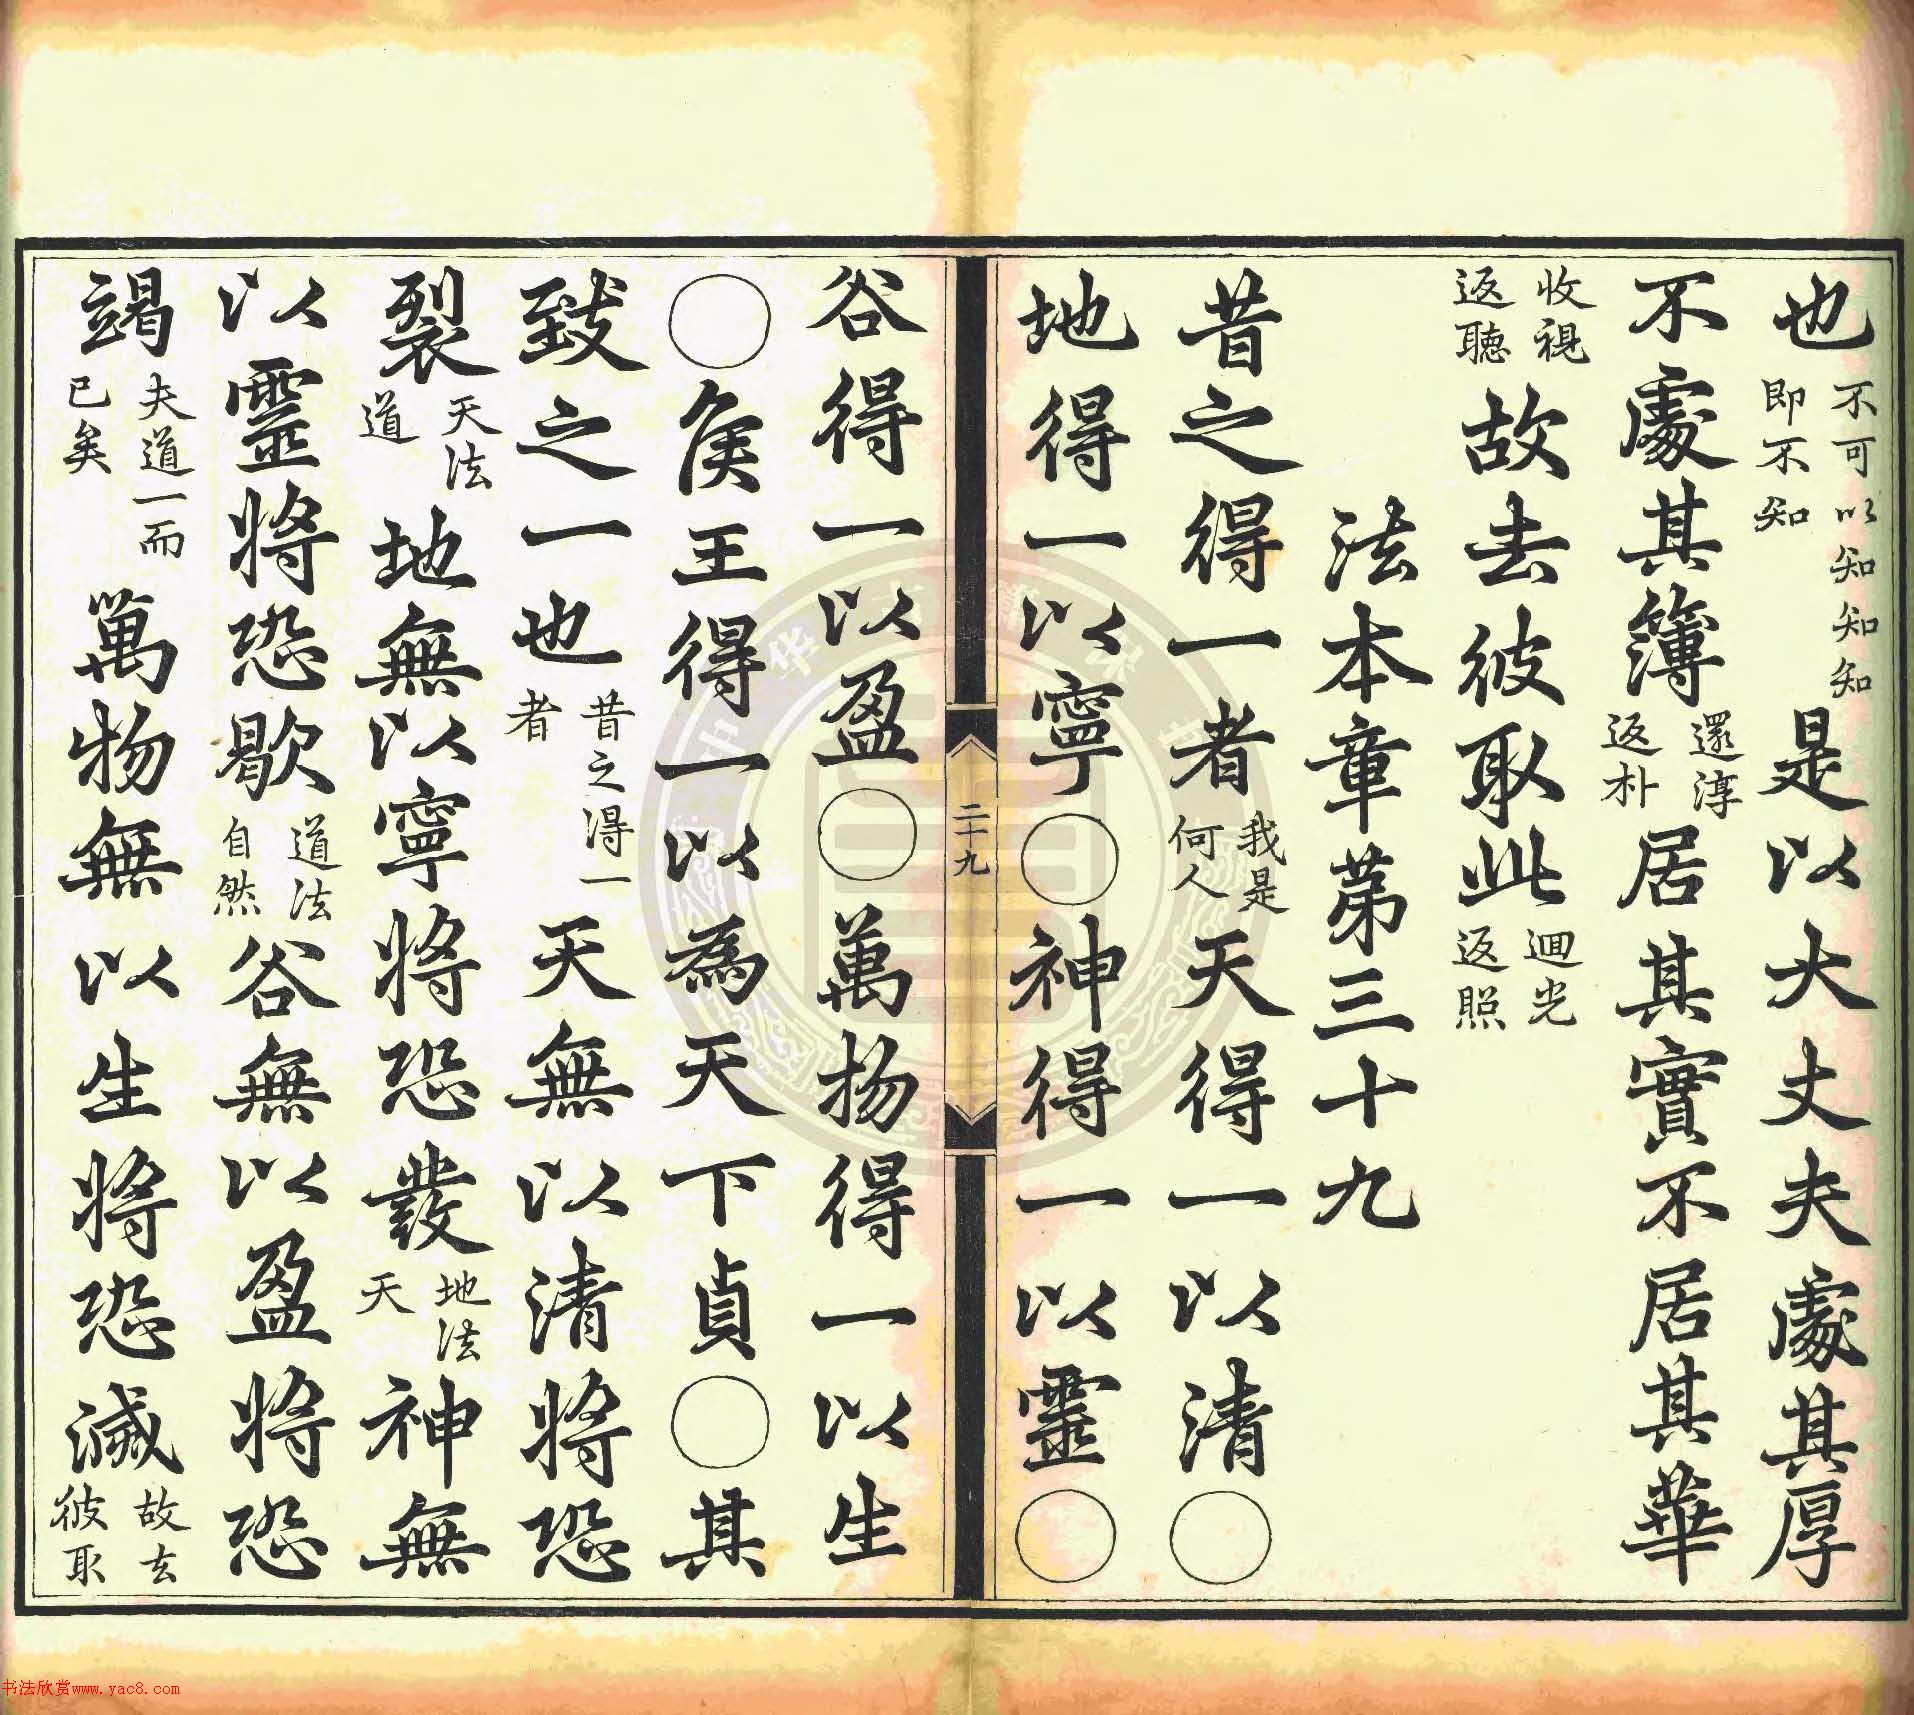 也不可以知知知即不知是以大丈夫處其厚
不處其簿還淳返朴居其實不居其華
收視返聽故去彼取此迴光返照
法本章苐三十九
昔之得一者我是何人天得一以清〇
地得一以寧〇神得一以靈〇
二十九
谷得一以盈〇萬物得一以生
〇矦王得一以為天下貞〇其
致之一也昔之得一者天無以清將恐
裂天法道地無以寧將恐發地法天神無
以靈將恐歇道法自然谷無以盈將恐
竭夫道一而已矣萬物無以生將恐滅故去彼取
书法欣赏www.yac8.com